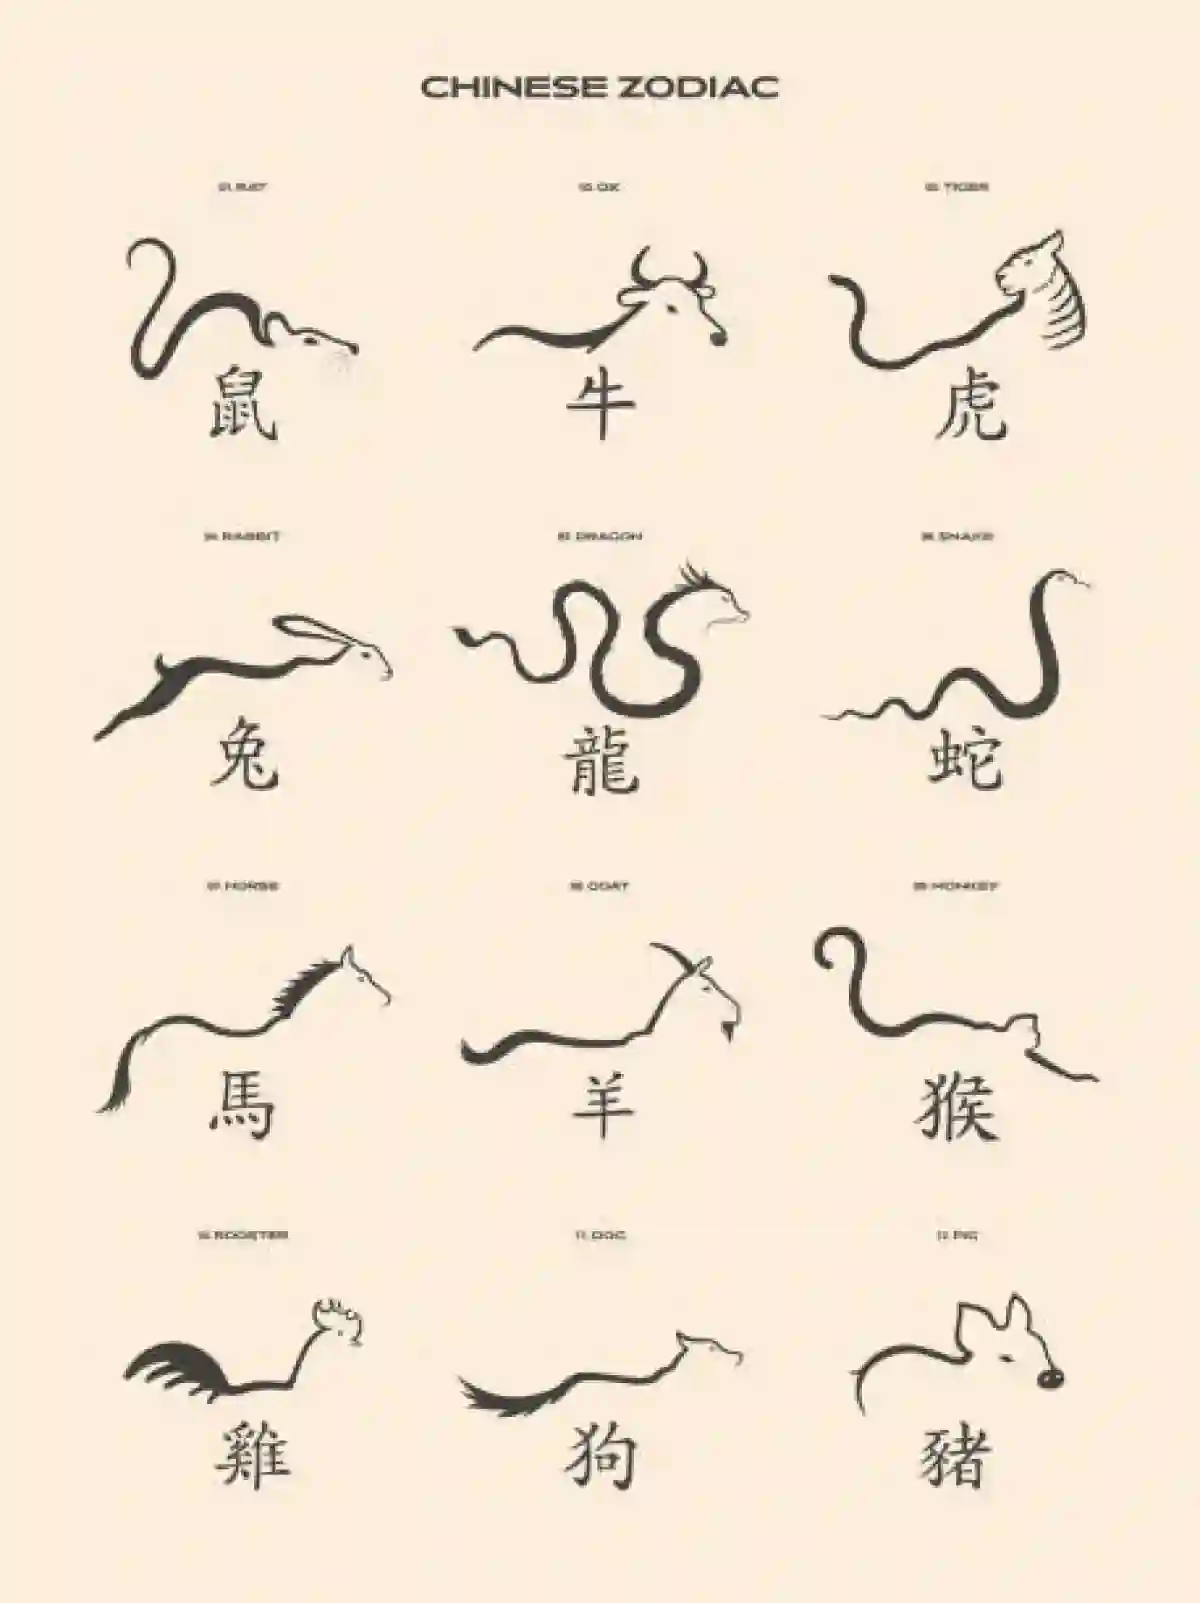 CHINESE ZODIAC
01. RAT
02. OX
03. TIGER
鼠
牛
虎
04. RABBIT
05. DRAGON
06. SNAKE
兔
龍
蛇
07. HORSE
08. GOAT
09. MONKEY
馬
羊
猴
10. ROOSTER
11. DOG
12. PIG
雞
狗
豬